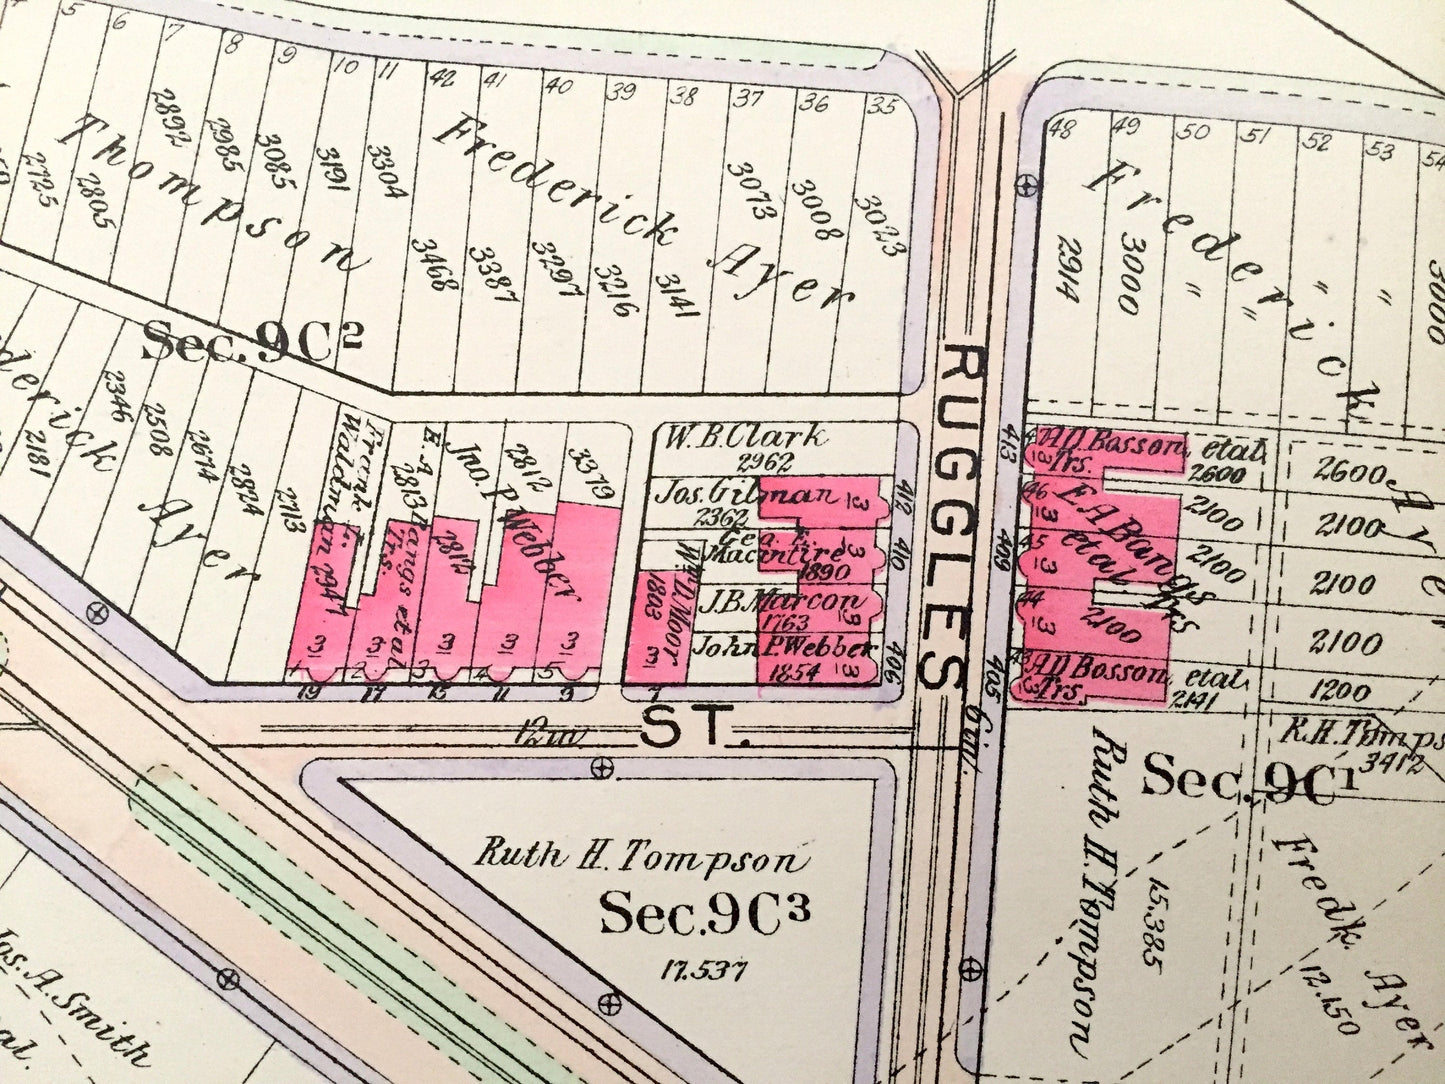 5 6 7 8 9 10 11 42 41 40 39 38 37 36 35
2725 2805 2892 2985 3085 3191 3304 3468 3387 3297 3216 3141 3073 3008 3023
Thompson
Frederick Ayer
48 49 50 51 52 53 54
2914 3000 " " " " 3000
Frederick Ayer
Sec. 9C2
derick Ayer
2181 2346 2508 2674 2824 2713
Frank L.
Waldman
E.A. Bangs etal
Trs.
2813
2812
Jno. P. Webber
2812
3379
3 3 3 3 3
1 2 3 4 5
19 17 15 11 9 7
W.B. Clark
2962
Jos. Gilman
2362
3
Geo. E.
Macintire
1890
3
J.B. Marcon
1763
3
John P. Webber
1854
3
Wm. D. Moor
1803
3
412 410 406
RUGGLES
ST.
12 in.
6 in.
413 409 405
47 A.D. Bosson, etal
Trs.
2600
3
46
3
E.A. Bangs
etal
Trs
2100
2100
2100
45
3
44
3
43 A.D. Bosson, etal
Trs.
2141
3
2600
2100
2100
2100
1200
R.H. Tomps
3412
Sec. 9C1
Ruth H. Tompson
15.385
Fredk. Ayer
12.150
Ruth H. Tompson
Sec. 9C3
17.537
Jos. A. Smith
al.